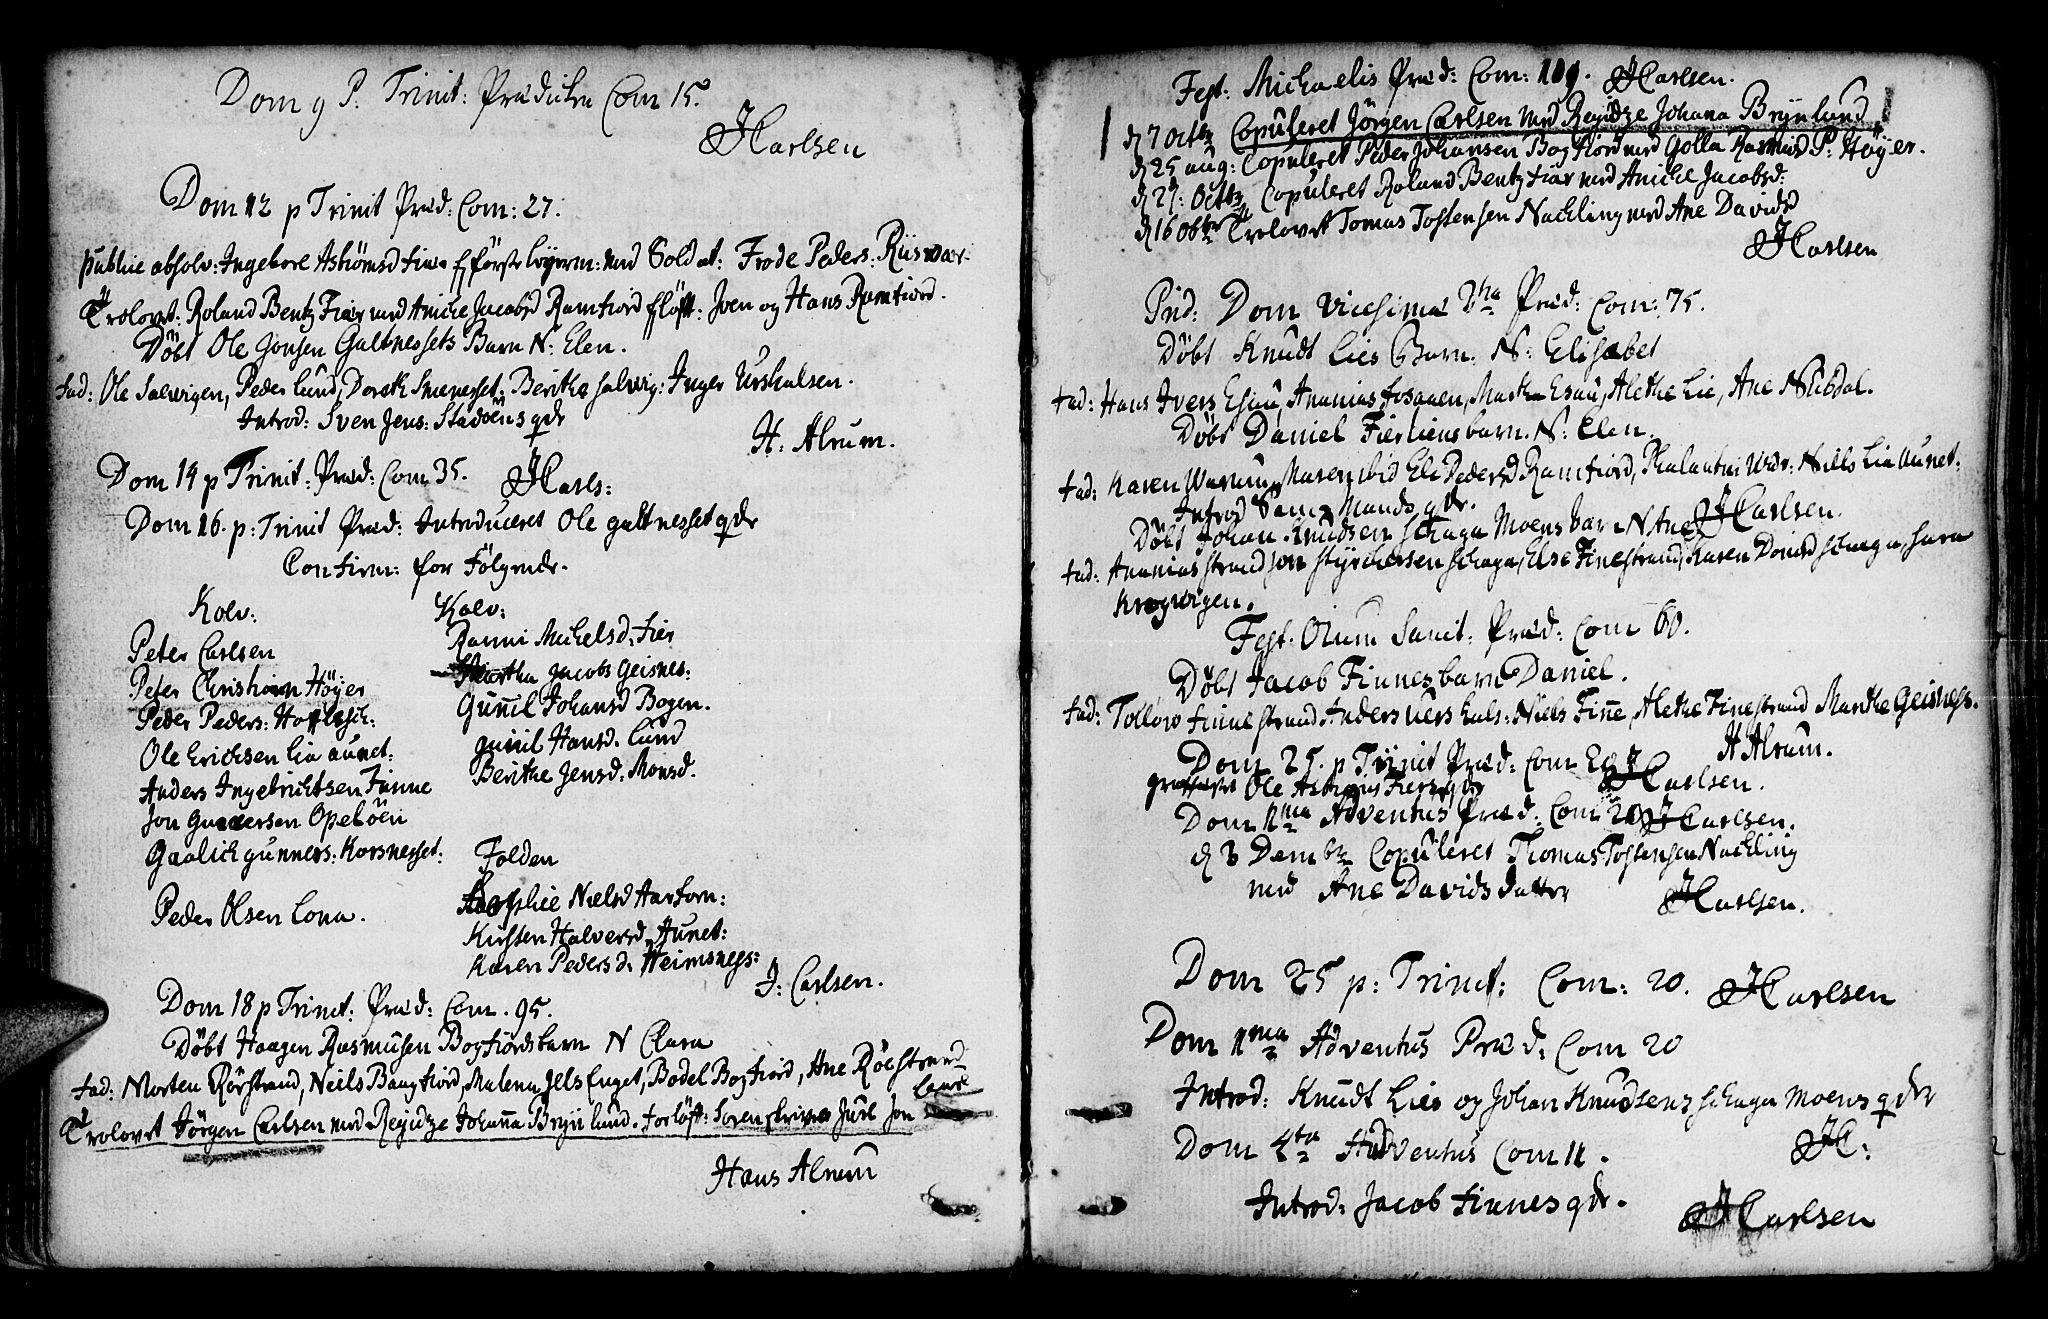 Dom 9 P. Trinit: Prædiken Com 15.
JCarlsen
Dom 12 p Trinit Præd: Com: 27.
publice absolv: Ingebore Fine första leyerm: med Soldat: Frode Peders:
Trolovet: Roland Bentz Fiær med Aniche Jacobsd Ramfiord fløft: Joen og Hans Ramfiord.
Döbt Ole Jonsen Galtnessets Barn N: Elen.
fad: Ole Salwigen, Peder Lund, Doreth Berithe Salwig: Inger
Introd: Sven Jens: Stadöens qde
H: Alrum.
Dom 14 p Trinit: Præd: Com 35. JCarls:
Dom 16. p: Trinit Præd: Introduceret Ole galtnesset qde
Confirm: for Fölgende.
Kolv: Kolv:
Peter Carlsen
Peter Christian Höyer
Peder Peders:
Ole Erichsen Lia aunet:
Anders Ingebrichtsen Finne
Jon Gundersen Opelöen
Gaalich gunners: Korsnesset:
Peder Olsen Lona.
Ranni Michelsd. Fier
Martha Jacobs Geisnes:
Gunnil Johansd Bogen.
gunil Hansd. Lund
Berithe Jensd. Monsd.
Folden
Sophie Nielsd
Kirsten Halversd. Aunet:
Karen Pedersd. Heimsness:
J: Carlsen.
Dom 18 p Trinit: Præd: Com. 95.
Döbt Haagen Rasmusen Bogfiords barn N Clara
fad: Morten Rörstrand, Neils Bangfiord, Malena Jells Enget, Bodel Bogfiord, Ane Röestrand
Trolovet Jörgen Carlsen med Regidze Johanna Bryn lund. Forlöft: Sorenskriver Juel Jon Lund
Hans Alrum
Fest: Michaelis Præd: Com: 109. JCarlsen.
d 7 Octb Copuleret Jörgen Carlsen med Regidze Johana Brynlund
d 25 aug: Copuleret Peder Johansen Bogfiord med Golla Rasmusd P: Höyer.
d 27: Octb Copuleret Roland Bentz Fiær med Aniche Jacobsd:
d 16 Trolovet Tomas Tostensen Nachling med Ane Davidsd
JCarlsen
Dom Vicesima 2da Præd: Com: 75.
Döbt Knudt Lies Barn. N: Elisabet
fad: Hans Ivers Esau, Ananias Fosaaen, Martha Esau, Alethe Lie, Ane Nubdal.
Döbt Daniel Fierliens barn. N: Elen.
fad: Karen Maren ibid Ele Pedersd Ramfiord, Nills Lia Aunet:
Introd qde.
Döbt Johan Knudsen Schaga Moens barn N Ane JCarlsen.
fad: Ananias strand Jon Styrchersen Schaga, Else Finestrand, Karen Schaga, Sara
Krogwigen.
Fest. Olum Sanct: Præd: Com 60.
Döbt Jacob Finnes barn Daniel.
fad: Tollow Finnestrand Anders Niels Finne, Alethe Finestrand Marithe Geisness.
H Alrum.
Dom 25. p Trinit Præd: Com 20 JCarlsen.
Ole Fiers qde
Dom 1ma Adventus Præd: Com 20 JCarlsen.
d 3 Decmb Copuleret Thomas Tostensen Nachling
med Ane Davids datter JCarlsen.
Dom 25 p: Trinit: Com: 20. JCarlsen
Dom 1ma Adventus Præd: Com 20
Introd: Knudt Lies og Johan Knudsens Schaga Moens qde
JC:
Dom 4ta Adventus Com 11.
Introd: Jacob Finnes qde.
JCarlsen